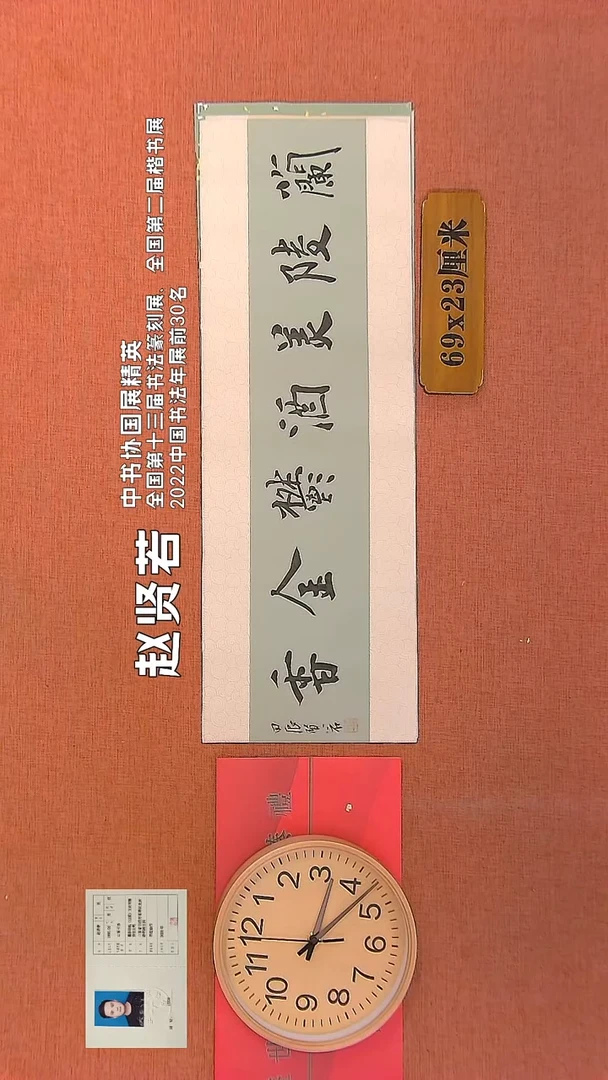 赵贤若
中书协国展精英
全国第十三届书法篆刻展、全国第二届楷书展
2022中国书法年展前30名
蘭陵美酒鬱金香
69x23厘米
12
1
2
3
4
5
6
7
8
9
10
11